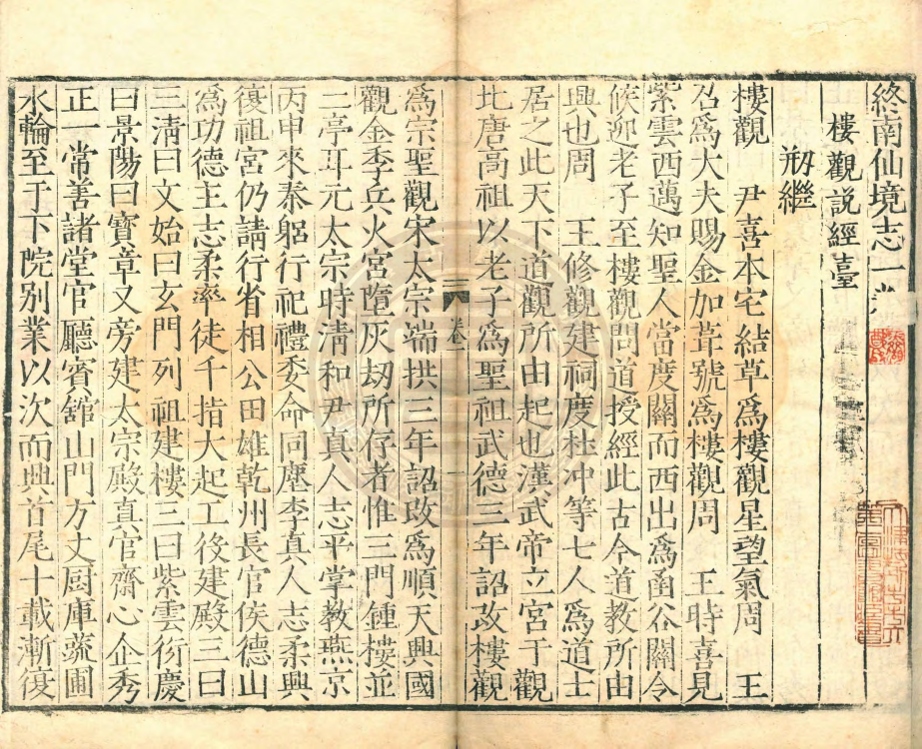 終南仙境志一
樓觀說經臺
刱繼
樓觀 尹喜本宅結草爲樓觀星望氣周 王
召爲大夫賜金加葺號爲樓觀周 王時喜見
紫雲西邁知聖人當度關而西出爲函谷關令
候迎老子至樓觀問道授經此古今道教所由
興也周 王修觀建祠度杜冲等七人爲道士
居之此天下道觀所由起也漢武帝立宮于觀
北唐高祖以老子爲聖祖武德三年詔改樓觀
卷一
一
爲宗聖觀宋太宗端拱三年詔改爲順天興國
觀金季兵火宮墮灰刧所存者惟三門鍾樓並
二亭耳元太宗時淸和尹真人志平掌教燕京
丙申來秦躬行祀禮委命同塵李真人志柔興
復祖宮仍請行省相公田雄乾州長官侯德山
爲功德主志柔率徒千指大起工役建殿三曰
三淸曰文始曰玄門列祖建樓三曰紫雲衍慶
曰景陽曰寶章又旁建太宗殿真官齋心企秀
正一常善諸堂官廳賓舘山門方丈厨庫蔬圃
水輪至于下院别業以次而興首尾十載漸復